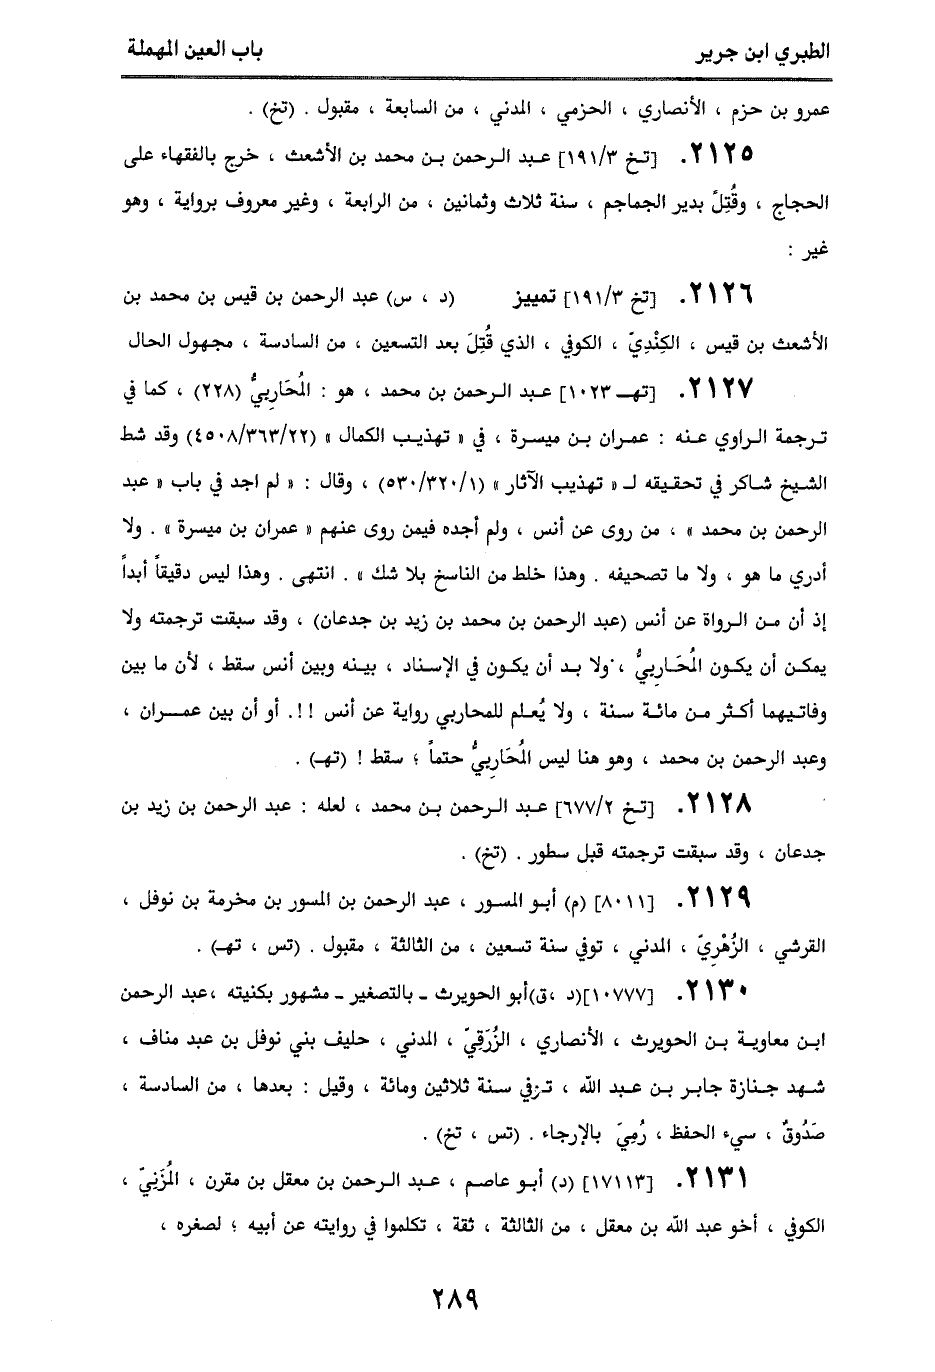 الطبري ابن جرير
باب العين المهملة
عمرو بن حزم ، الأنصاري ، الحزمي ، المدني ، من السابعة ، مقبول . (تخ) .
٢١٢٥. [تخ ١٩١/٣] عبد الرحمن بن محمد بن الأشعث ، خرج بالفقهاء على
الحجاج ، وقُتِلَ بدير الجماجم ، سنة ثلاث وثمانين ، من الرابعة ، وغير معروف برواية ، وهو
غير :
٢١٢٦. [تخ ١٩١/٣] تمييز (د ، س) عبد الرحمن بن قيس بن محمد بن
الأشعث بن قيس ، الكِنْدِيّ ، الكوفي ، الذي قُتِلَ بعد التسعين ، من السادسة ، مجهول الحال
٢١٢٧. [تهـ ١٠٢٣] عبد الرحمن بن محمد ، هو : المُحَاربيُّ (٢٢٨) ، كما في
ترجمة الراوي عنه : عمران بن ميسرة ، في « تهذيب الكمال » (٤٥٠٨/٣٦٣/٢٢) وقد شط
الشيخ شاكر في تحقيقه لـ « تهذيب الآثار » (٥٣٠/٣٢٠/١) ، وقال : « لم اجد في باب « عبد
الرحمن بن محمد » ، من روى عن أنس ، ولم أجده فيمن روى عنهم « عمران بن ميسرة » . ولا
أدري ما هو ، ولا ما تصحيفه . وهذا خلط من الناسخ بلا شك » . انتهى . وهذا ليس دقيقاً أبداً
إذ أن من الرواة عن أنس (عبد الرحمن بن محمد بن زيد بن جدعان) ، وقد سبقت ترجمته ولا
يمكن أن يكون المُحَاربيُّ ، ولا بد أن يكون في الإسناد ، بينه وبين أنس سقط ، لأن ما بين
وفاتيهما أكثر من مائة سنة ، ولا يُعلم للمحاربي رواية عن أنس !!. أو أن بين عمران ،
وعبد الرحمن بن محمد ، وهو هنا ليس المُحَاربيُّ حتماً ؛ سقط ! (تهـ) .
٢١٢٨. [تخ ٦٧٧/٢] عبد الرحمن بن محمد ، لعله : عبد الرحمن بن زيد بن
جدعان ، وقد سبقت ترجمته قبل سطور . (تخ) .
٢١٢٩. [٨٠١١] (م) أبو المسور ، عبد الرحمن بن المسور بن مخرمة بن نوفل ،
القرشي ، الزُهْرِيّ ، المدني ، توفي سنة تسعين ، من الثالثة ، مقبول . (تس ، تهـ) .
٢١٣٠. [١٠٧٧٧](د ،ق)أبو الحويرث ـ بالتصغير ـ مشهور بكنيته ،عبد الرحمن
ابن معاوية بن الحويرث ، الأنصاري ، الزُرَقِيّ ، المدني ، حليف بني نوفل بن عبد مناف ،
شهد جنازة جابر بن عبد الله ، توفي سنة ثلاثين ومائة ، وقيل : بعدها ، من السادسة ،
صَدُوقٌ ، سيء الحفظ ، رُمِيَ بالإرجاء . (تس ، تخ) .
٢١٣١. [١٧١١٣] (د) أبو عاصم ، عبد الرحمن بن معقل بن مقرن ، المُزَنِيّ ،
الكوفي ، أخو عبد الله بن معقل ، من الثالثة ، ثقة ، تكلموا في روايته عن أبيه ؛ لصغره ،
٢٨٩